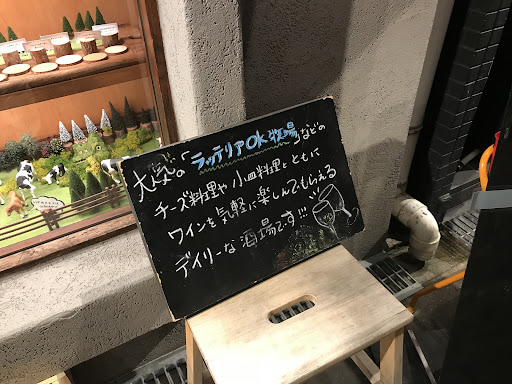 大気の「ラッテリアOK牧場」などの
チーズ料理や小皿料理とともに
ワインを気軽に楽しんでもらえる
デイリーな酒場です!!!